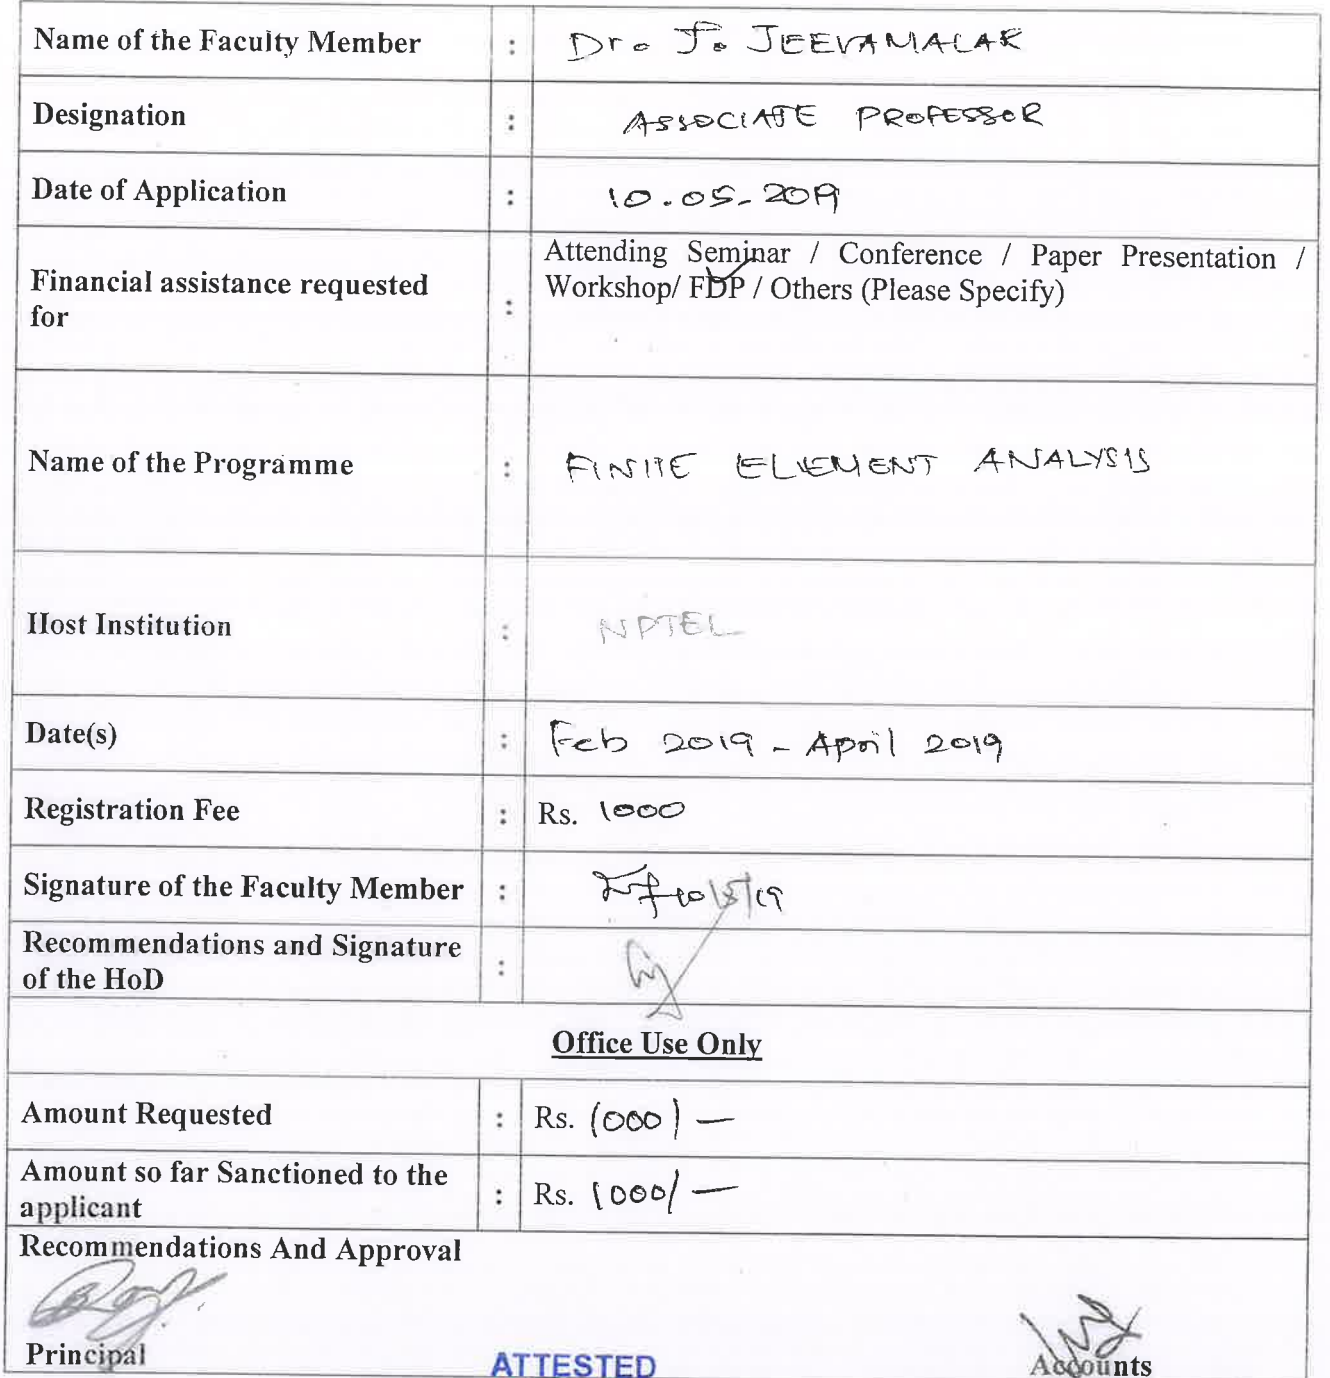 Name of the Faculty Member : Dr. J. JEEVAMALAR
Designation : ASSOCIATE PROFESSOR
Date of Application : 10.05.2019
Attending Seminar / Conference / Paper Presentation /
Financial assistance requested : Workshop/ FDP / Others (Please Specify)
for
Name of the Programme : FINITE ELEMENT ANALYSIS
Host Institution : NPTEL
Date(s) : Feb 2019 - April 2019
Registration Fee : Rs. 1000
Signature of the Faculty Member : 10/5/19
Recommendations and Signature
of the HoD :
Office Use Only
Amount Requested : Rs. 1000/-
Amount so far Sanctioned to the
applicant : Rs. 1000/-
Recommendations And Approval
Principal ATTESTED Accounts